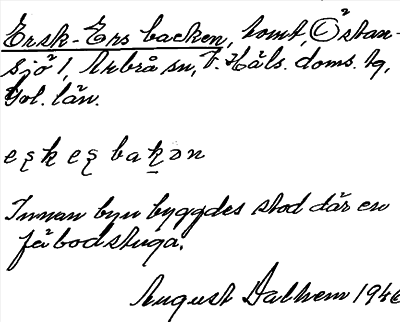 Ersk-Ers backen, tomt, Östan-
sjö 1, Arbrå sn, V. Häls. doms. tg,
Gvl. län.
ęşk eş bakən
Innan byn byggdes stod där en
fäbodstuga.
August Dalhem 1946